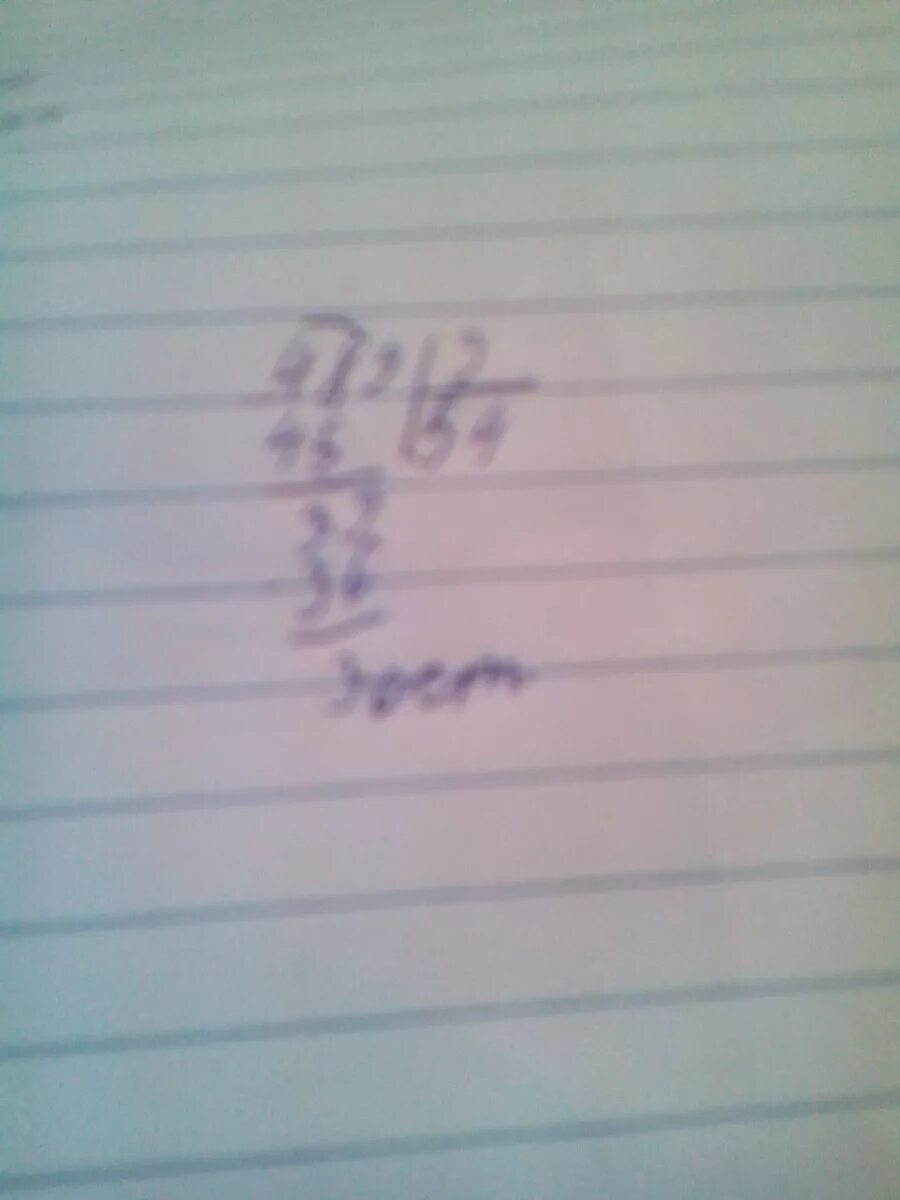 489 9
45 54
39
36
3 ост